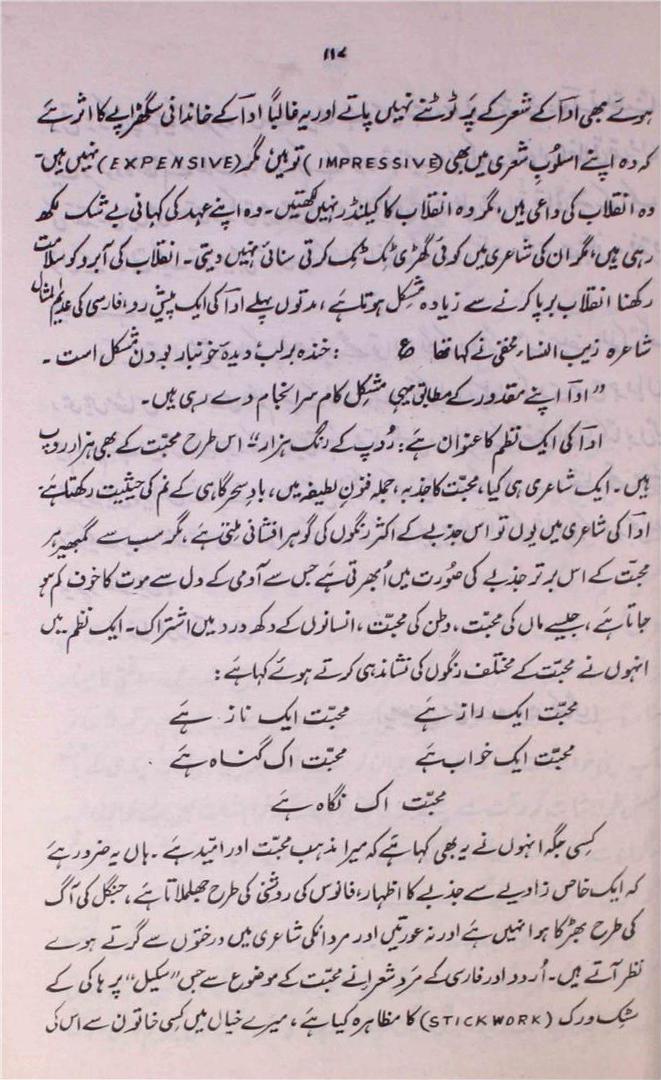 ۱۱۷
ہوئے بھی اداؔ کے شعر کے پَر ٹوٹنے نہیں پاتے اور یہ غالباً اداؔ کے خاندانی سگھڑاپے کا اثر ہے
کہ وہ اپنے اسلوبِ شعری میں بھی (IMPRESSIVE) تو ہیں مگر (EXPENSIVE) نہیں ہیں۔
وہ انقلاب کی داعی ہیں، مگر وہ انقلاب کا کیلنڈر نہیں لکھتیں۔ وہ اپنے عہد کی کہانی بے شک لکھ
رہی ہیں، مگر ان کی شاعری میں کوئی گھڑی ٹِک ٹِک کرتی سنائی نہیں دیتی۔ انقلاب کی آبرو کو سلامت
رکھنا انقلاب برپا کرنے سے زیادہ مشکل ہوتا ہے، مدتوں پہلے اداؔ کی ایک پیش رو، فارسی کی عدیم المثال
شاعرہ زیب النساء مخفی نے کہا تھا ع : خندہ برلب دیدہ خونبار بودن مشکل است۔
"اداؔ اپنے مقدور کے مطابق یہی مشکل کام سرانجام دے رہی ہیں۔
اداؔ کی ایک نظم کا عنوان ہے: رُوپ کے رنگ ہزار" اس طرح محبت کے بھی ہزار روپ
ہیں۔ ایک شاعری ہی کیا، محبّت کا جذبہ، جملہ فنونِ لطیفہ میں، بادِ سحرگاہی کے نم کی حیثیت رکھتا ہے:
اداؔ کی شاعری میں یوں تو اس جذبے کے اکثر رنگوں کی گوہرافشانی ملتی ہے، مگر سب سے گمبھیر لہر
محبّت کے اس برتر جذبے کی صُورت میں اُبھرتی ہے جس سے آدمی کے دل سے موت کا خوف کم ہو
جاتا ہے، جیسے ماں کی محبّت، وطن کی محبّت، انسانوں کے دکھ درد میں اشتراک۔ ایک نظم میں
انہوں نے محبّت کے مختلف رنگوں کی نشاندہی کرتے ہوئے کہا ہے:
محبّت ایک راز ہے محبّت ایک ناز ہے
محبّت ایک خواب ہے محبّت اک گناہ ہے
محبّت اک نگاہ ہے
کسی جگہ انہوں نے یہ بھی کہا ہے کہ میرا مذہب محبّت اور امّید ہے۔ ہاں یہ ضرور ہے
کہ ایک خاص زاویے سے جذبے کا اظہار، فانوس کی روشنی کی طرح جھلملاتا ہے، جنگل کی آگ
کی طرح بھڑکا ہوا نہیں ہے اور نہ عورتیں اور مرد انکی شاعری میں درختوں سے گرتے ہوے
نظر آتے ہیں۔ اُردو اور فارسی کے مَرد شعرا نے محبّت کے موضوع سے جس "سکیل" پر ہاکی کے
سٹِک ورک (STICKWORK) کا مظاہرہ کیا ہے، میرے خیال میں کسی خاتون سے اس کی